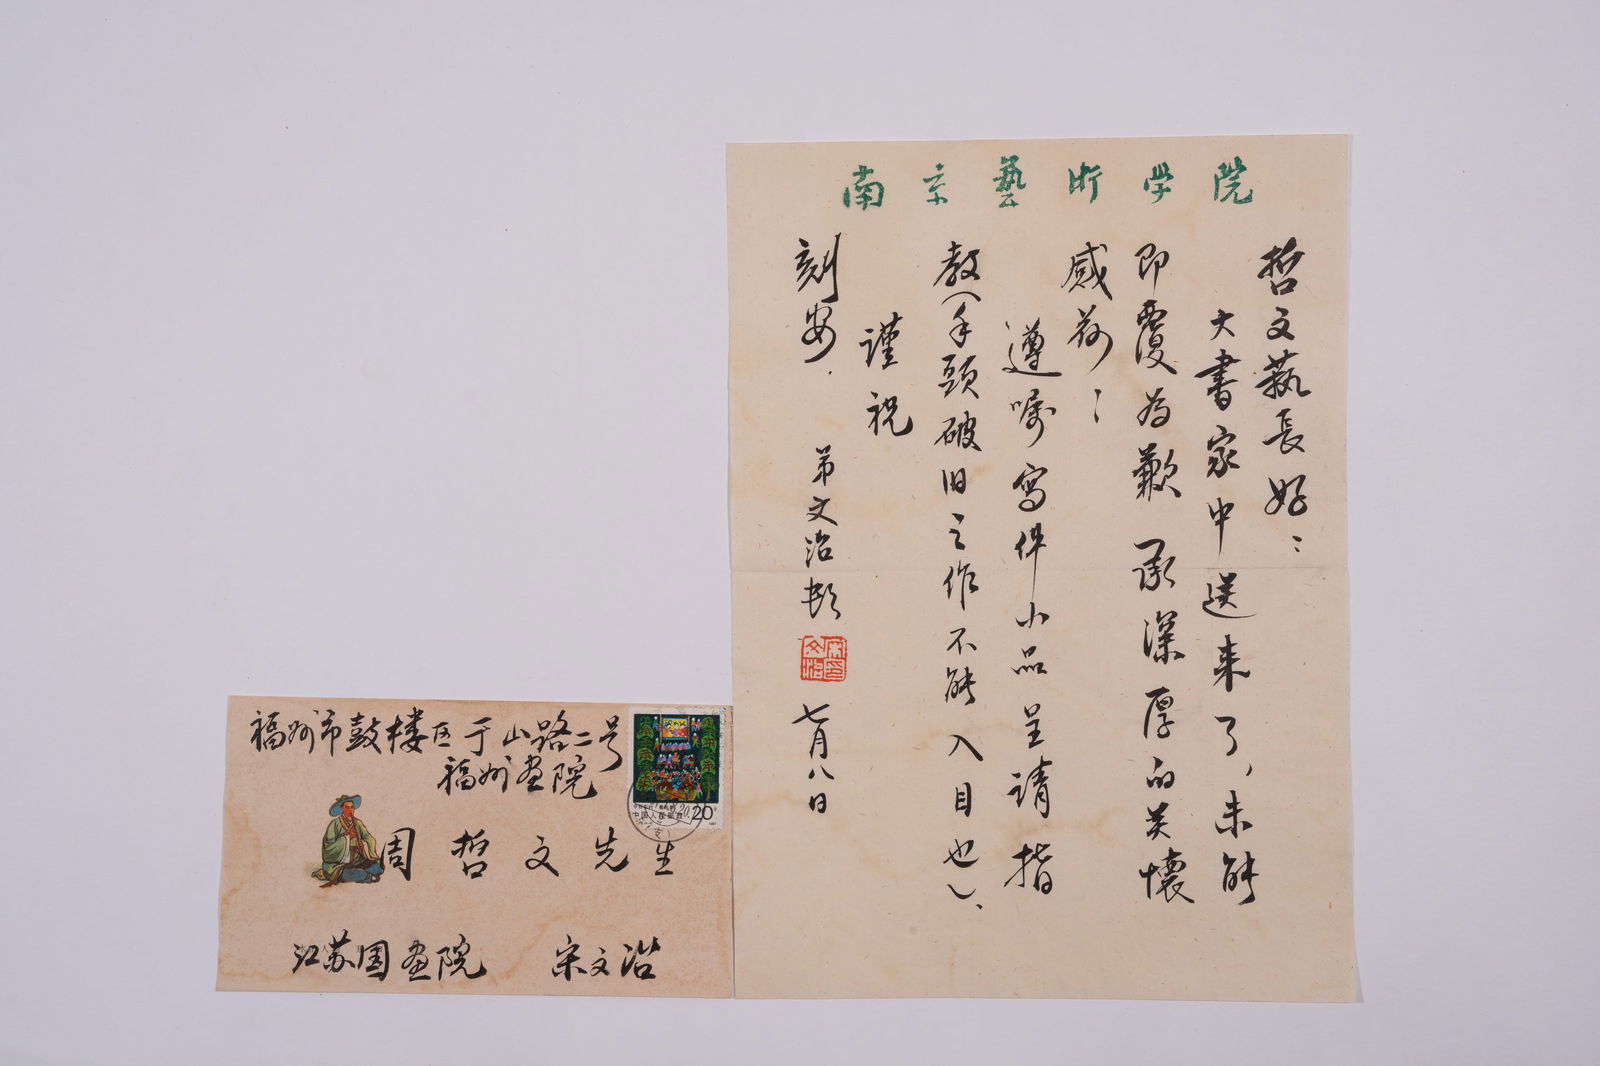 南京藝術学院
哲文藝長好：
大書家中送来了，未能
即覆为歉 承深厚的关懷
感荷：
遵嘱寫件小品呈請指
教（手頭破旧之作不能入目也）、
謹祝
刻安．
弟文治頓
宋文治印
七月八日
福州市鼓楼区于山路二号
福州画院
周哲文先生
江苏国画院 宋文治
中国人民邮政
20